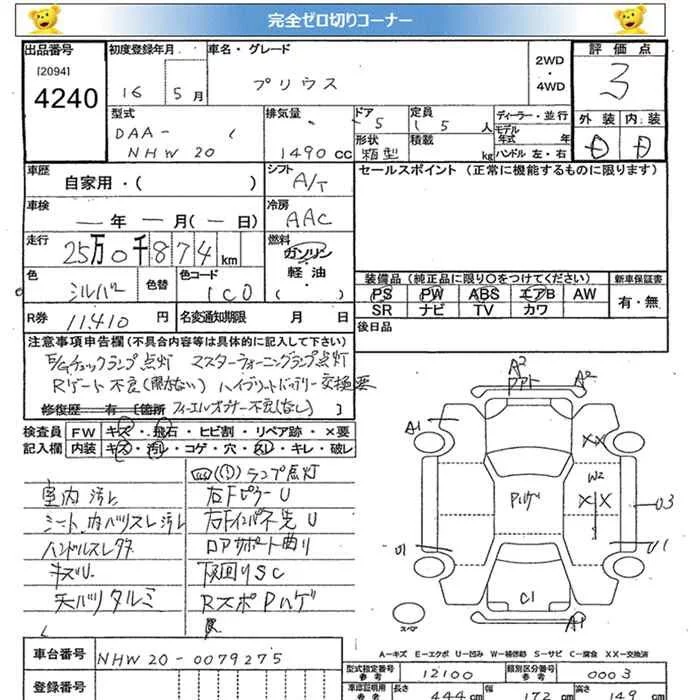 完全ゼロ切りコーナー
出品番号 初度登録年月 車名・グレード 2WD・4WD 評価点
[2094]
4240
16 5月 プリウス 3
型式 排気量 ドア 定員 ディーラー・並行 外装 内装
DAA-
NHW20 1490cc 5 5人 モデル年式 年
形状 積載 kg ハンドル 左・右
箱型
車歴 シフト セールスポイント (正常に機能するものに限ります)
自家用・( ) A/T
車検 冷房
— 年 — 月(— 日) AAC
走行 燃料
25万0千874km ガソリン
軽油
( )
色 色替 色コード 装備品 (純正品に限り○をつけてください) 新車保証書
シルバー 1C0 PS PW ABS エアB AW 有・無
SR ナビ TV カワ
R券 11,410円 名変通知期限 月 日 後日品
注意事項申告欄 (不具合内容等は具体的に記入して下さい)
E/Gチェックランプ点灯 マスターウォーニングランプ点灯
Rゲート不良(開かない) ハイブリットバッテリー交換要
修復歴 有 [箇所 フィーエルオープナー不良(なし) ]
検査員 FW キズ・飛石・ヒビ割・リペア跡・×要
記入欄 内装 キズ・汚レ・コゲ・穴・スレ・キレ・破レ
(!)ランプ点灯
室内汚レ 右FピラーU
シート、内バリスレ汚レ 右FインパネU
ハンドルスレ ロアサポート曲り
キズU 下回りSC
天バリタルミ RスポPハゲ
A2
A2
A1
XX
W2
Pハゲ XX
U3
U1 U1
C1
A1
スペア
A—キズ E—エクボ U—凹み W—補修跡 S—サビ C—腐食 XX—交換済
車台番号 NHW20-0079275
型式指定番号 参考 12100 類別区分番号 参考 0003
登録番号
車認証明用 参考 長さ 444cm 幅 172cm 高さ 149cm